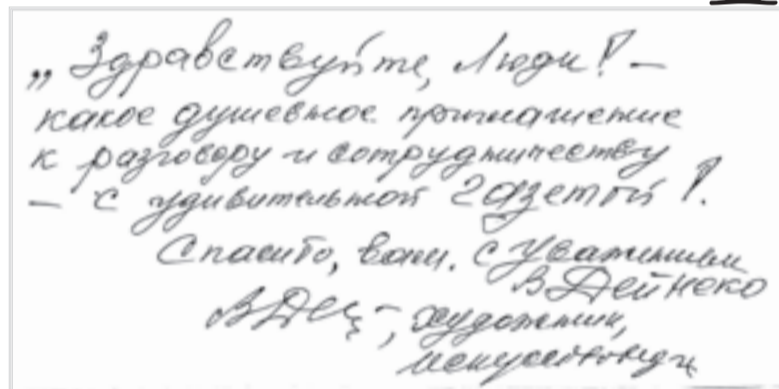 „Здравствуйте, Люди! —
какое душевное приглашение
к разговору и сотрудничеству
— с удивительной газетой!.
Спасибо, вам. С уважением
В Дейнеко
художник,
искусствовед